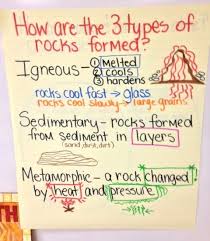 How are the 3 types of
rocks formed?
Igneous - ① melted
② cools
③ hardens
rocks cool fast → glass
rocks cool slowly → large grains
Sedimentary - rocks formed
from sediment in layers
(sand, dust, dirt)
Metamorphic - a rock changed
by heat and pressure
TH